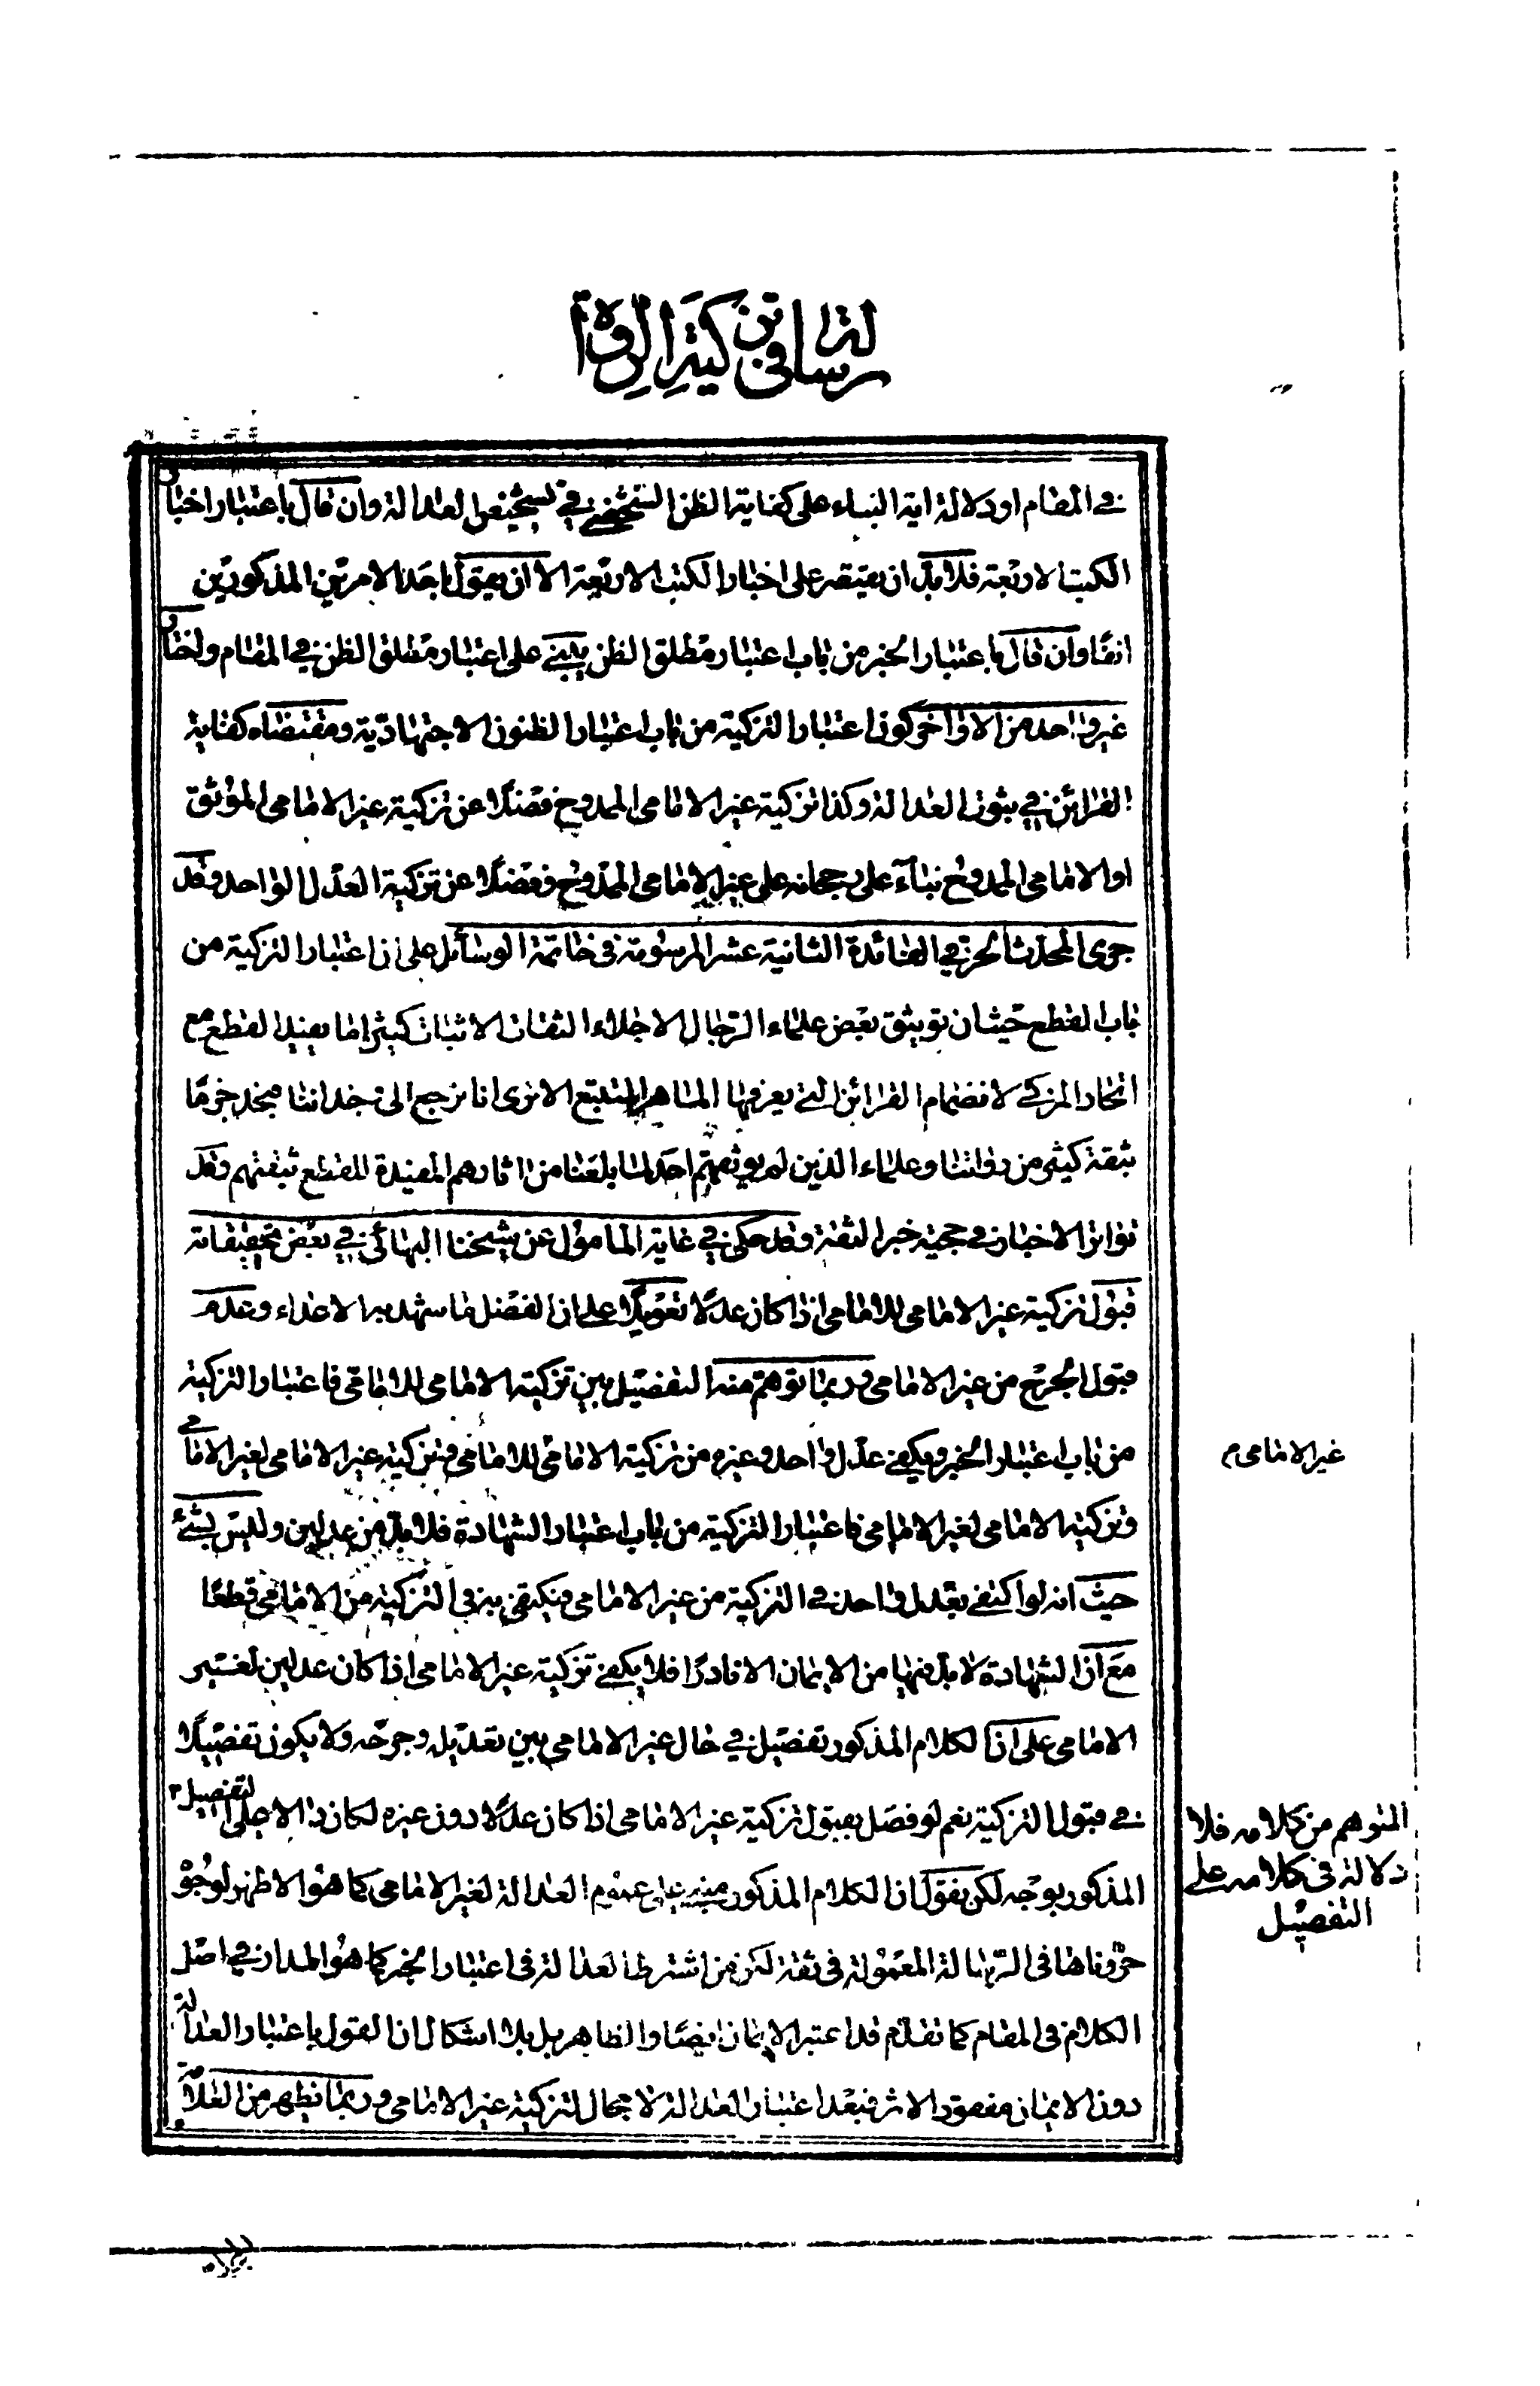 رسالة في تزكية الرواة
في المقام او دلالة اية النباء على كفاية الظن الشخصي في تشخيص العدالة وان قال باعتبار اخبار
الكتب الاربعة فلا بد ان يقتصر على اخبار الكتب الاربعة الا ان يقول باحد الامرين المذكورين
انفا وان قال باعتبار الخبر من باب اعتبار مطلق الظن يبنى على اعتبار مطلق الظن في المقام واختار
غير واحد من الاواخر كون اعتبار التزكية من باب اعتبار الظنون الاجتهادية ومقتضاه كفاية
القرائن في ثبوت العدالة وكذا تزكية غير الامامي الممدوح فضلا عن تزكية غير الامامي الموثق
او الامامي الممدوح بناء على رجحانه على غير الامامي الممدوح وفضلا عن تزكية العدل الواحد وقد
جرى المحدث الحر في الفائدة الثانية عشر المرسومة في خاتمة الوسائل على ان اعتبار التزكية من
باب القطع حيث ان توثيق بعض علماء الرجال الاجلاء الثقات الاثبات كثيرا ما يفيد القطع مع
اتحاد المزكى لانضمام القرائن التي يعرفها الماهر المتتبع الا ترى انا نرجع الى وجداننا فنجد جزما
بثقة كثير من رواتنا وعلماء الذين لم يوثقهم احد لما بلغنا من اثارهم المفيدة للقطع بثقتهم وقد
تواتر الاخبار في حجية خبر الثقة وقد حكى في غاية المامول عن شيخنا البهائي في بعض تحقيقاته
قبول تزكية غير الامامي للامامي اذا كان عدلا تعويلا على ان الفضل ما شهد به الاعداء وعدم
قبول الجرح من غير الامامي وربما توهم منه التفصيل بين تزكية الامامي للامامي فاعتبار التزكية
من باب اعتبار الخبر ويكفي عدل واحد وغيره من تزكية الامامي للامامي وتزكية غير الامامي لغير الامامي
غير الامامي م
وتزكية الامامي لغير الامامي فاعتبار التزكية من باب اعتبار الشهادة فلا بد من عدلين وليس بشئ
حيث انه لو اكتفى بعدل واحد في التزكية من غير الامامي فيكتفى به في التزكية من الامامي قطعا
مع ان الشهادة لا بد فيها من الايمان الا نادرا فلا يكفي تزكية غير الامامي اذا كان عدلين لغير
الامامي على ان الكلام المذكور تفصيل في حال غير الامامي بين تعديله وجرحه ولا يكون تفصيلا
في قبول التزكية نعم لو فصل بقبول تزكية غير الامامي اذا كان عدلا دون غيره لكان دالا على التفصيل
المتوهم من كلامه فلا
دلالة في كلامه على
التفصيل
المذكور بوجه لكن نقول ان الكلام المذكور مبني على عموم العدالة لغير الامامي كما هو الاظهر لوجوه
حررناها في الرسالة المعمولة في ثقة لكن من اشترط العدالة في اعتبار الخبر كما هو المدار في اصل
الكلام في المقام كما تقدم قد اعتبر الايمان ايضا والظاهر بل بلا اشكال ان القول باعتبار العدالة
دون الايمان مفقود الاثر فبعد اعتبار العدالة لا مجال لتزكية غير الامامي وربما يظهر من العلامة